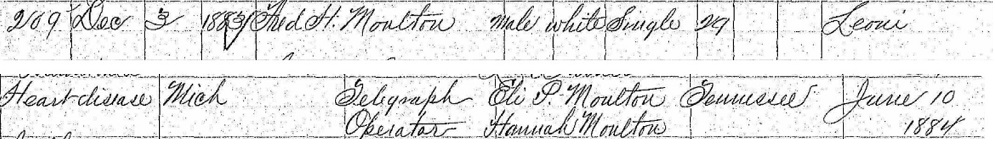 209 Dec 3 1883 Fred H. Moulton male white Single 29 Leoni
Heart disease Mich Telegraph Eli P. Moulton Tennessee June 10
Operator Hannah Moulton 1884